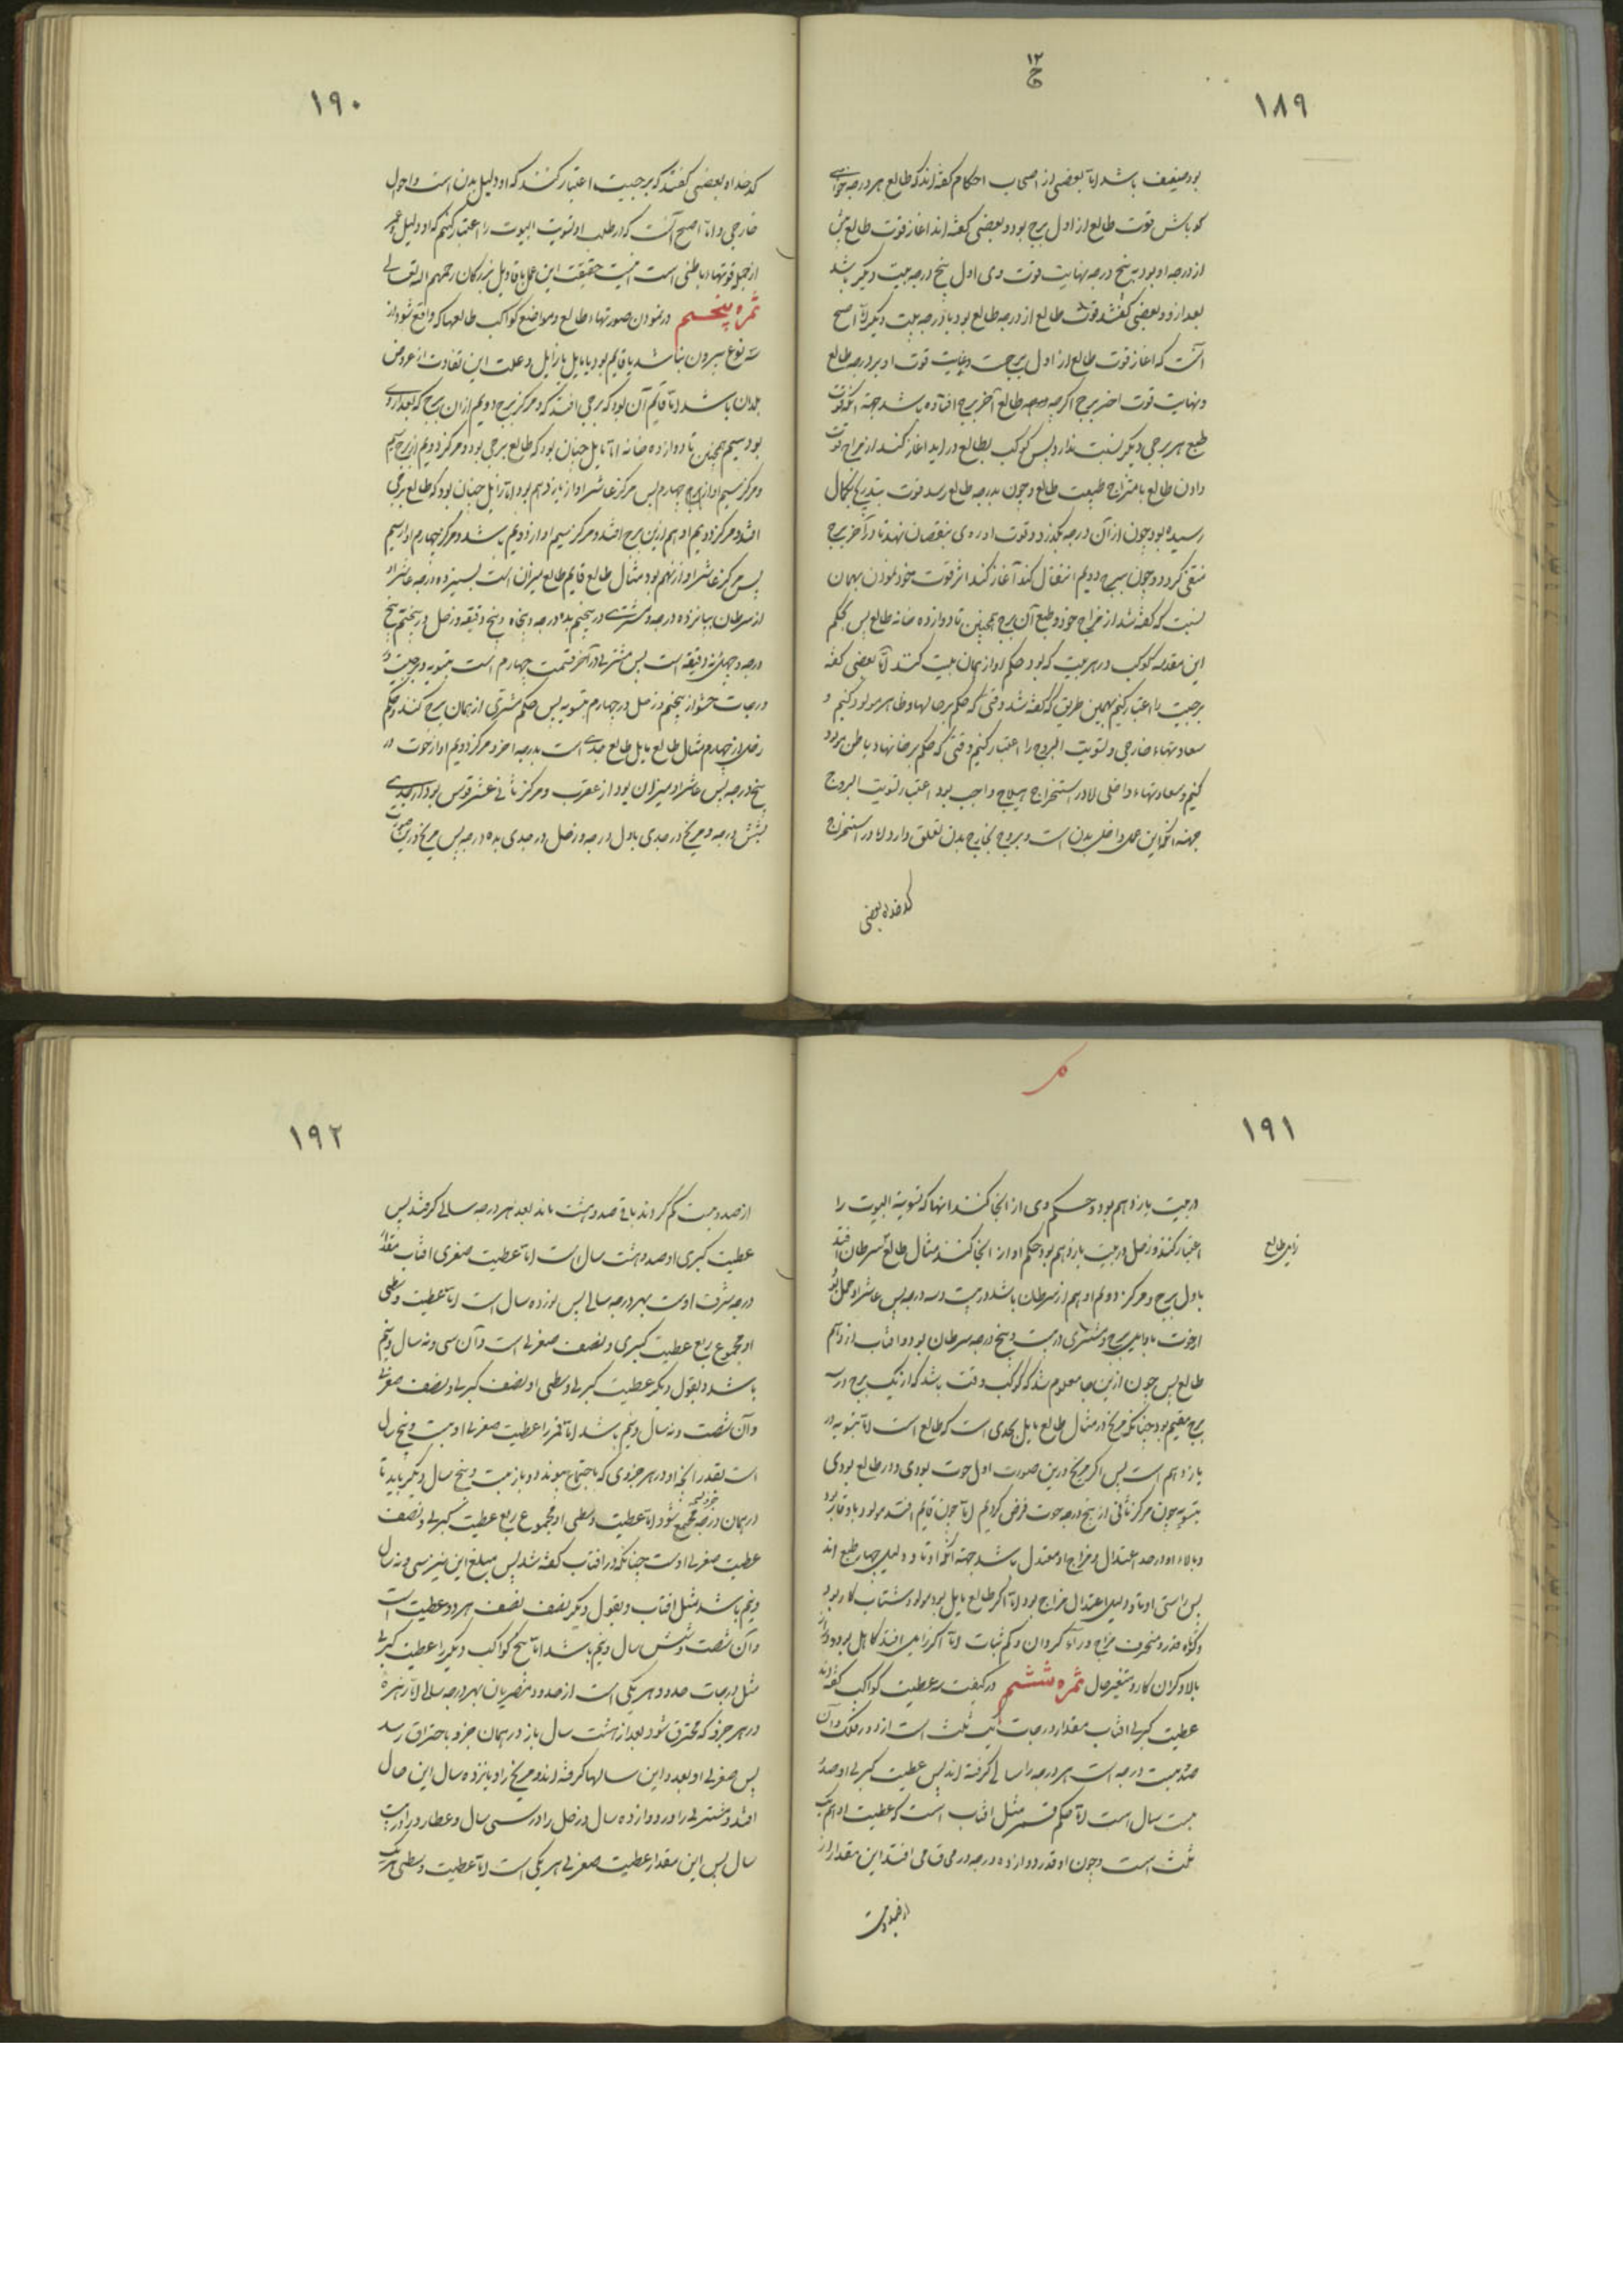 ۱۲
ح
۱۸۹
بود ضعیف باشد اما بعضی از اصحاب احکام گفته‌اند که طالع هر درجه
کو باش قوت طالع از اول برج بود و بعضی گفته‌اند اغاز قوت طالع پیش
از درجه او بود به پنج درجه نهایت قوت وی اول پنج درجه بیت دیکر باشد
بعد ازو و بعضی گفتند قوت طالع از درجه طالع بود تا درجه بیت دیکر اما اصح
آنست که اغاز قوت طالع از اول برجست و غایت قوت او بر درجه طالع
و نهایت قوت اخر برج اکرچه درجه طالع آخر برج افتاده باشد جهة آنکه قوت
طبع هر برجی دیکر نسبت ندارد پس کوکب بطالع در اید اغاز کند از مزاج قوت
دادن طالع بامتزاج طبیعت طالع و چون بدرجه طالع رسد قوت بتدریج بکمال
رسیده بود چون از آن درجه بگذرد و قوت او روی بنقصان نهد تا در آخر برج
منتفی کردد و چون ببرج دویم انتقال کند آغاز کند اثر قوت خود نمودن بهمان
نسبت که گفته شد از مزاج خود و طبع آن برج همچنین تا دوازده خانه طالع پس بحکم
این مقدمه کوکب در هر بیت که بود حکم او از همان بیت کنند اما بعضی گفته
برجیت را اعتبار کنیم بهمین طریق که گفته شد وقتی که حکم بر حالها و ظاهر مولود کنیم و
سعادتهاء خارجی و تسویت البروج را اعتبار کنیم وقتی که حکم بر خانها و باطن مولود
کنیم و سعادتهاء داخلی اما در استخراج هیلاج واجب بود اعتبار تسویت البروج
جهة آنکه این عمل داخل بدن است و بروج بخارج بدن تعلق دارد اما در استخراج
کدخداه بعضی
۱۹۰
کدخداه بعضی گفتند که برجیت اعتبار کنند که او دلیل بدن است و احوال
خارجی و اما اصح آنست که در طلب او تسویت البیوت را اعتبار کنیم که او دلیل عمر
از جمله قوتهاء باطنی است اینست حقیقت این عمل باقاویل بزرکان رحمهم الله تعالی
ثمره پنجم در نمودن صورتهاء طالع و مواضع کواکب طالعها که واقع شود از
سه نوع بیرون نباشد یا قایم بود یا مایل یا زایل و علت این تفاوت از عروض
بلدان باشد اما قایم آن بود که برجی افتد که و مرکز برج دویم از ان برج که بعد از وی
بود سیم همچنین تا دوازده خانه اما مایل چنان بود که طالع برجی بود و مرکز دویم از برج سیم
و مرکز سیم او از برج چهارم پس مرکز عاشر او از یازدهم بود اما زایل چنان بود که طالع برجی
افتد و مرکز دویم او هم ازین برج افتد و مرکز سیم او از دویم باشد و مرکز چهارم او از سیم
پس مرکز عاشر او از نهم بود مثال طالع قایم طالع میزان است بسیزده درجه عاشر او
از سرطان بپانزده درجه و مشتری در پنجم بده درجه و پنجاه و پنج دقیقه و زحل در پنجم پنج
درجه و چهل‌ونه دقیقه است پس مشتری در آخر قسمت چهارم است بتسویه و برجیت
درجات حشو از پنجم و زحل در چهارم بتسویه پس حکم مشتری از همان برج کنند و حکم
زحل از چهارم مثال طالع مایل طالع جدی است بدرجه اخر و مرکز دویم او از حوت در
پنج درجه پس عاشر او میزان بود از عقرب و مرکز ثانی عشر قوس بود از جدی
بشش درجه و مریخ در جدی باول درجه و زحل در جدی بده درجه پس مریخ درین صورت
۱۹۱
در بیت یازدهم بود و حکم وی از انجا کنند انها که تسویة البیوت را
اعتبار کنند و زحل در بیت یازدهم بود حکم او از انجا کنند مثال طالع سرطان افتد
زایل طالع
باول برج و مرکز دویم او هم از سرطان باشد در بیست و سه درجه پس عاشر او حمل بود
از حوت باوایل برج و مشتری در بیست و پنج درجه سرطان بود و افتاب از دهم
طالع پس چون ازین جا معلوم شد که کوکب وقت باشد که از یک برج در سه
برج مقیم بود چنانکه مریخ در مثال طالع مایل بجدی است که طالع است اما بتسویه در
یازدهم است پس اکر مریخ درین صورت اول حوت بودی و در طالع بودی
بتسویه چون مرکز ثانی از پنج درجه حوت فرض کردیم اما چون قایم افتد مولود با وقار بود
و بالاء او در حد اعتدال و مزاج او معتدل باشد جهة آنکه اوتاد دلیل چهار طبع اند
پس راستی اوتاد دلیل اعتدال مزاج بود اما اکر طالع مایل بود مولود شتاب کار بود
و کوتاه قد و منحرف مزاج و رآء کردان و کم ثبات اما اکر زایل افتد کاهل بود و دراز
بالا و کران کار و متغیر حال ثمره ششم در کیفیت سه عطیت کواکب گفته‌اند
عطیت کبری افتاب مقدار درجات یک ثلث است از دور فلک و آن
صد و بیست درجه است هر درجه را سالی گرفته اند پس عطیت کبری او صد و
بیست سال است اما حکم قمر مثل افتاب است که عطیت او هم یک
ثلث است و چون او قدر دوازده درجه در محاق می افتد این مقدار از
از صد و بیست
۱۹۲
از صد و بیست کم کردند باقی صد و هشت ماند بعد هر درجه سالی گرفتند پس
عطیت کبری او صد و هشت سال است اما عطیت صغری افتاب مقدار
درجه شرف اوست بهر درجه سالی پس نوزده سال است اما عطیت وسطی
او مجموع ربع عطیت کبری و نصف صغری است و آن سی و نه سال و نیم
باشد و بقول دیکر عطیت کبری و وسطی او نصف کبری و نصف صغری
و آن شصت و نه سال و نیم باشد اما قمر را عطیت صغری او بیست و پنج سال
است بقدر آنکه او در هر جزوی که باجتماع پیوندد و باز بیست و پنج سال دیکر باید تا
در همان درجه جزو مجتمع شود اما عطیت وسطی او مجموع ربع عطیت کبری و نصف
عطیت صغری اوست چنانکه در افتاب گفته شد پس مبلغ این نیز سی و نه سال
و نیم باشد مثل افتاب و بقول دیکر نصف نصف هر دو عطیت است
و آن شصت و شش سال و نیم باشد اما پنج کواکب دیکر را عطیت کبری
مثل درجات حدود هر یکی است از حدود مصریان بهر درجه سالی اما زهره
در هر جزو که محترق شود بعد از هشت سال باز در همان جزو باحتراق رسد
پس صغری او بعدد این سالها گرفته اند و مریخ را و پانزده سال این حال
افتد و مشتری را در دوازده سال و زحل را در سی سال و عطارد را در بیست
سال پس این مقدار عطیت صغری هر یکی است اما عطیت وسطی هر یک